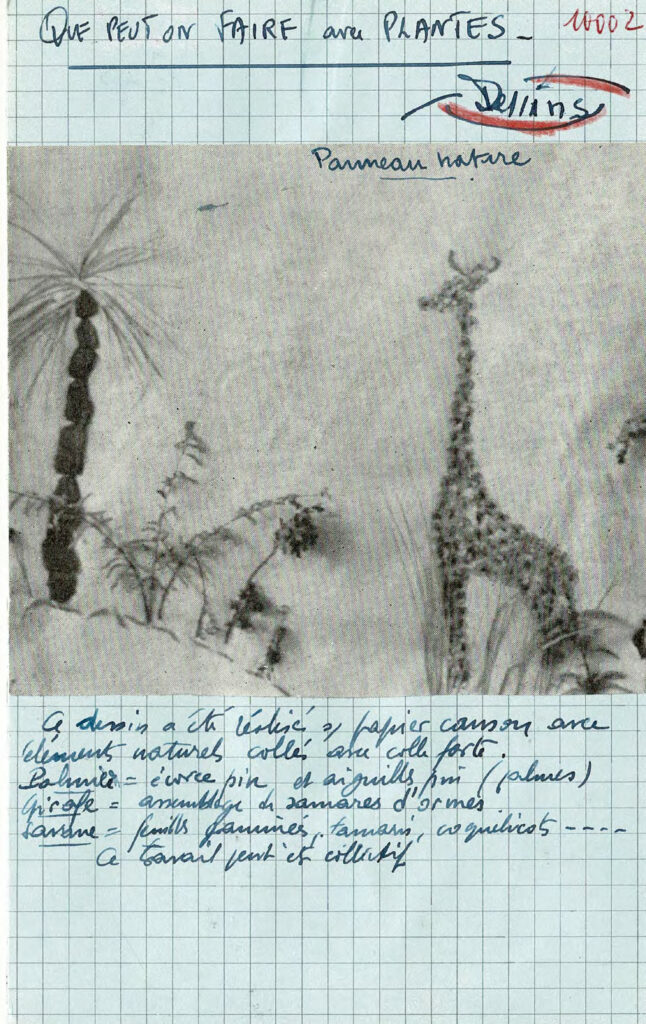 QUE PEUT ON FAIRE avec PLANTES _ 10002
Dessins
Panneau nature
Ce dessin a été réalisé s/ papier canson avec
éléments naturels collés avec colle forte.
Palmier = écorce pin et aiguilles pin (palmes)
Girafe = assemblage de samares d'ormes.
Savane = feuilles graminés, tamaris, coquelicots ----
Ce travail peut êt collectif